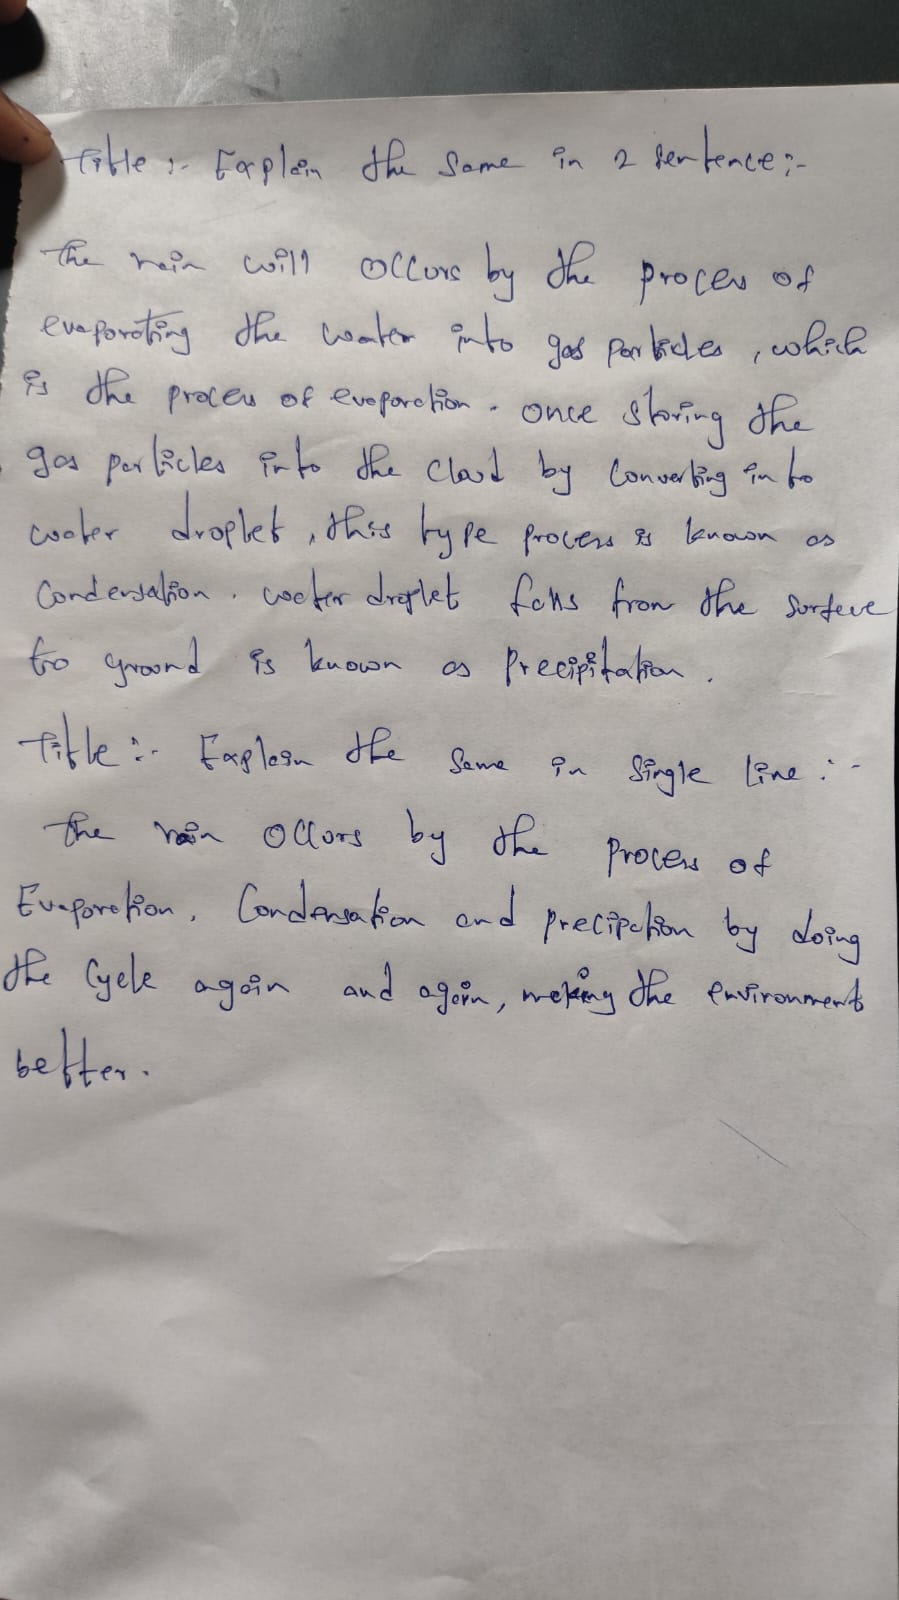 Title :- Explain the same in 2 sentence :-
The rain will occurs by the process of
evaporating the water into gas particles, which
is the process of evaporation. once storing the
gas particles into the cloud by converting into
water droplet, this type process is known as
Condensation. water droplet falls from the surface
to ground is known as Precipitation.
Title :- Explain the same in single line :-
The rain occurs by the process of
Evaporation, Condensation and precipation by doing
the cycle again and again, making the environment
better.